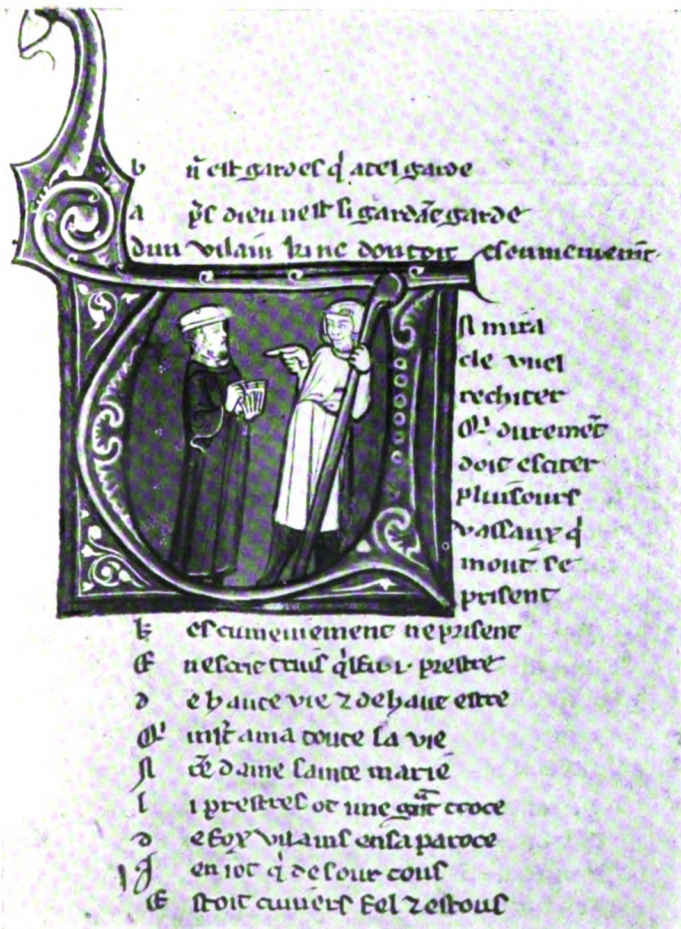 b n̄ est gardes q̓ atel garde
a p̄s dieu nest si gardāt garde
dun vilain ki ne doutoit escumenient.
N mira
cle vuel
rechiter
Q̓ duremēt
doit esciter
pluisours
vassaux q̓
mout se
prisent
k escumeniement ne prisent
E nescrit truis q̓l fu .i. prestre
d e haute vie ⁊ de haut estre
Q̓ mlt̄ ama toute sa vie
N r̄e dame sainte marie
l i prestres ot une gr̄nt croce
d e fox vilains en sa paroce
J en i ot q̓ de sour tous
E stoit cuivers fel ⁊ estous